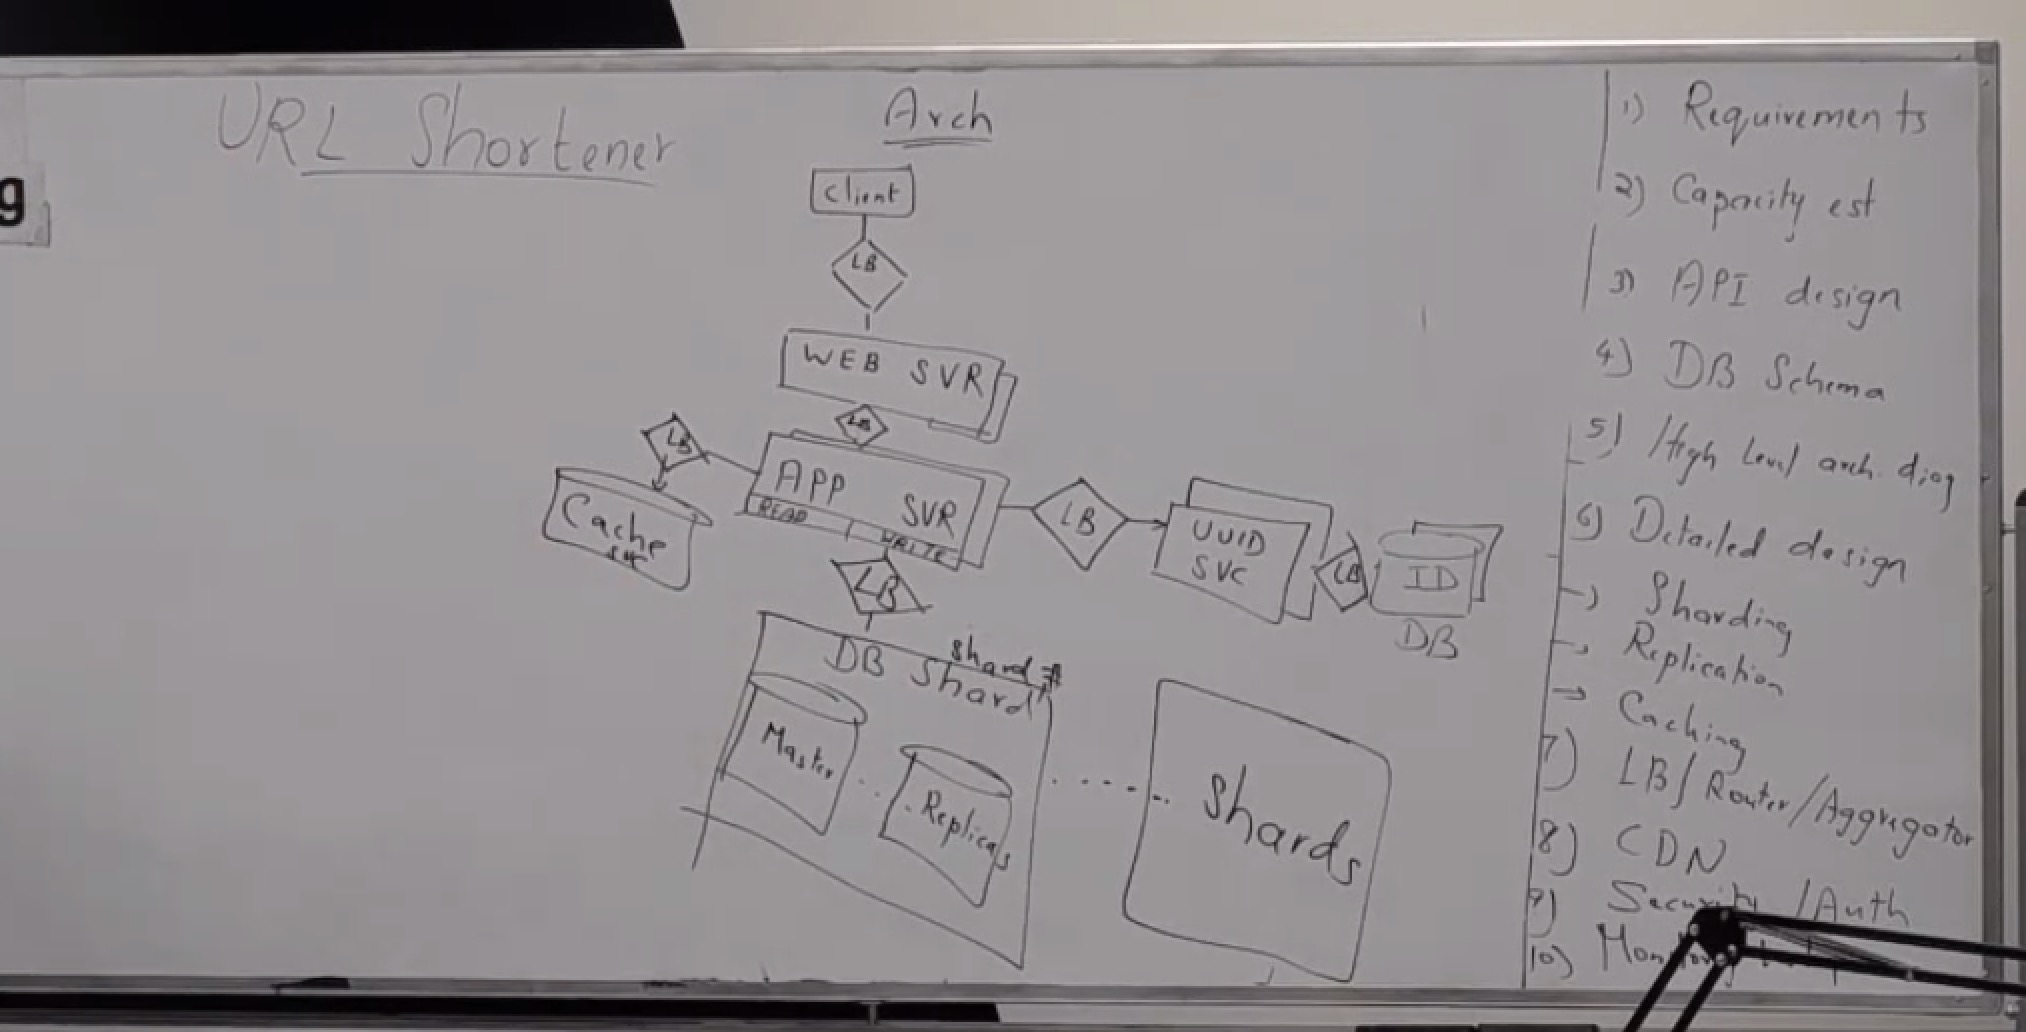 g
URL Shortener
Arch
Client
LB
WEB SVR
LB
LB
APP SVR
READ
WRITE
Cache
LB
UUID
SVC
LB
ID
DB
LB
DB Shard
Shard #1
Master
Replicas
Shards
1) Requirements
2) Capacity est
3) API design
4) DB Schema
5) High Level arch. diag
6) Detailed design
→ Sharding
→ Replication
→ Caching
7) LB/Router/Aggregator
8) CDN
9) Security/Auth
10)